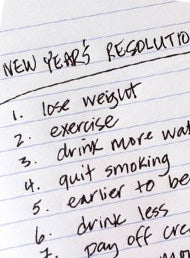 NEW YEAR'S RESOLUTIO
1. lose weight
2. exercise
3. drink more wat
4. quit smoking
5. earlier to be
6. drink less
7. pay off cre